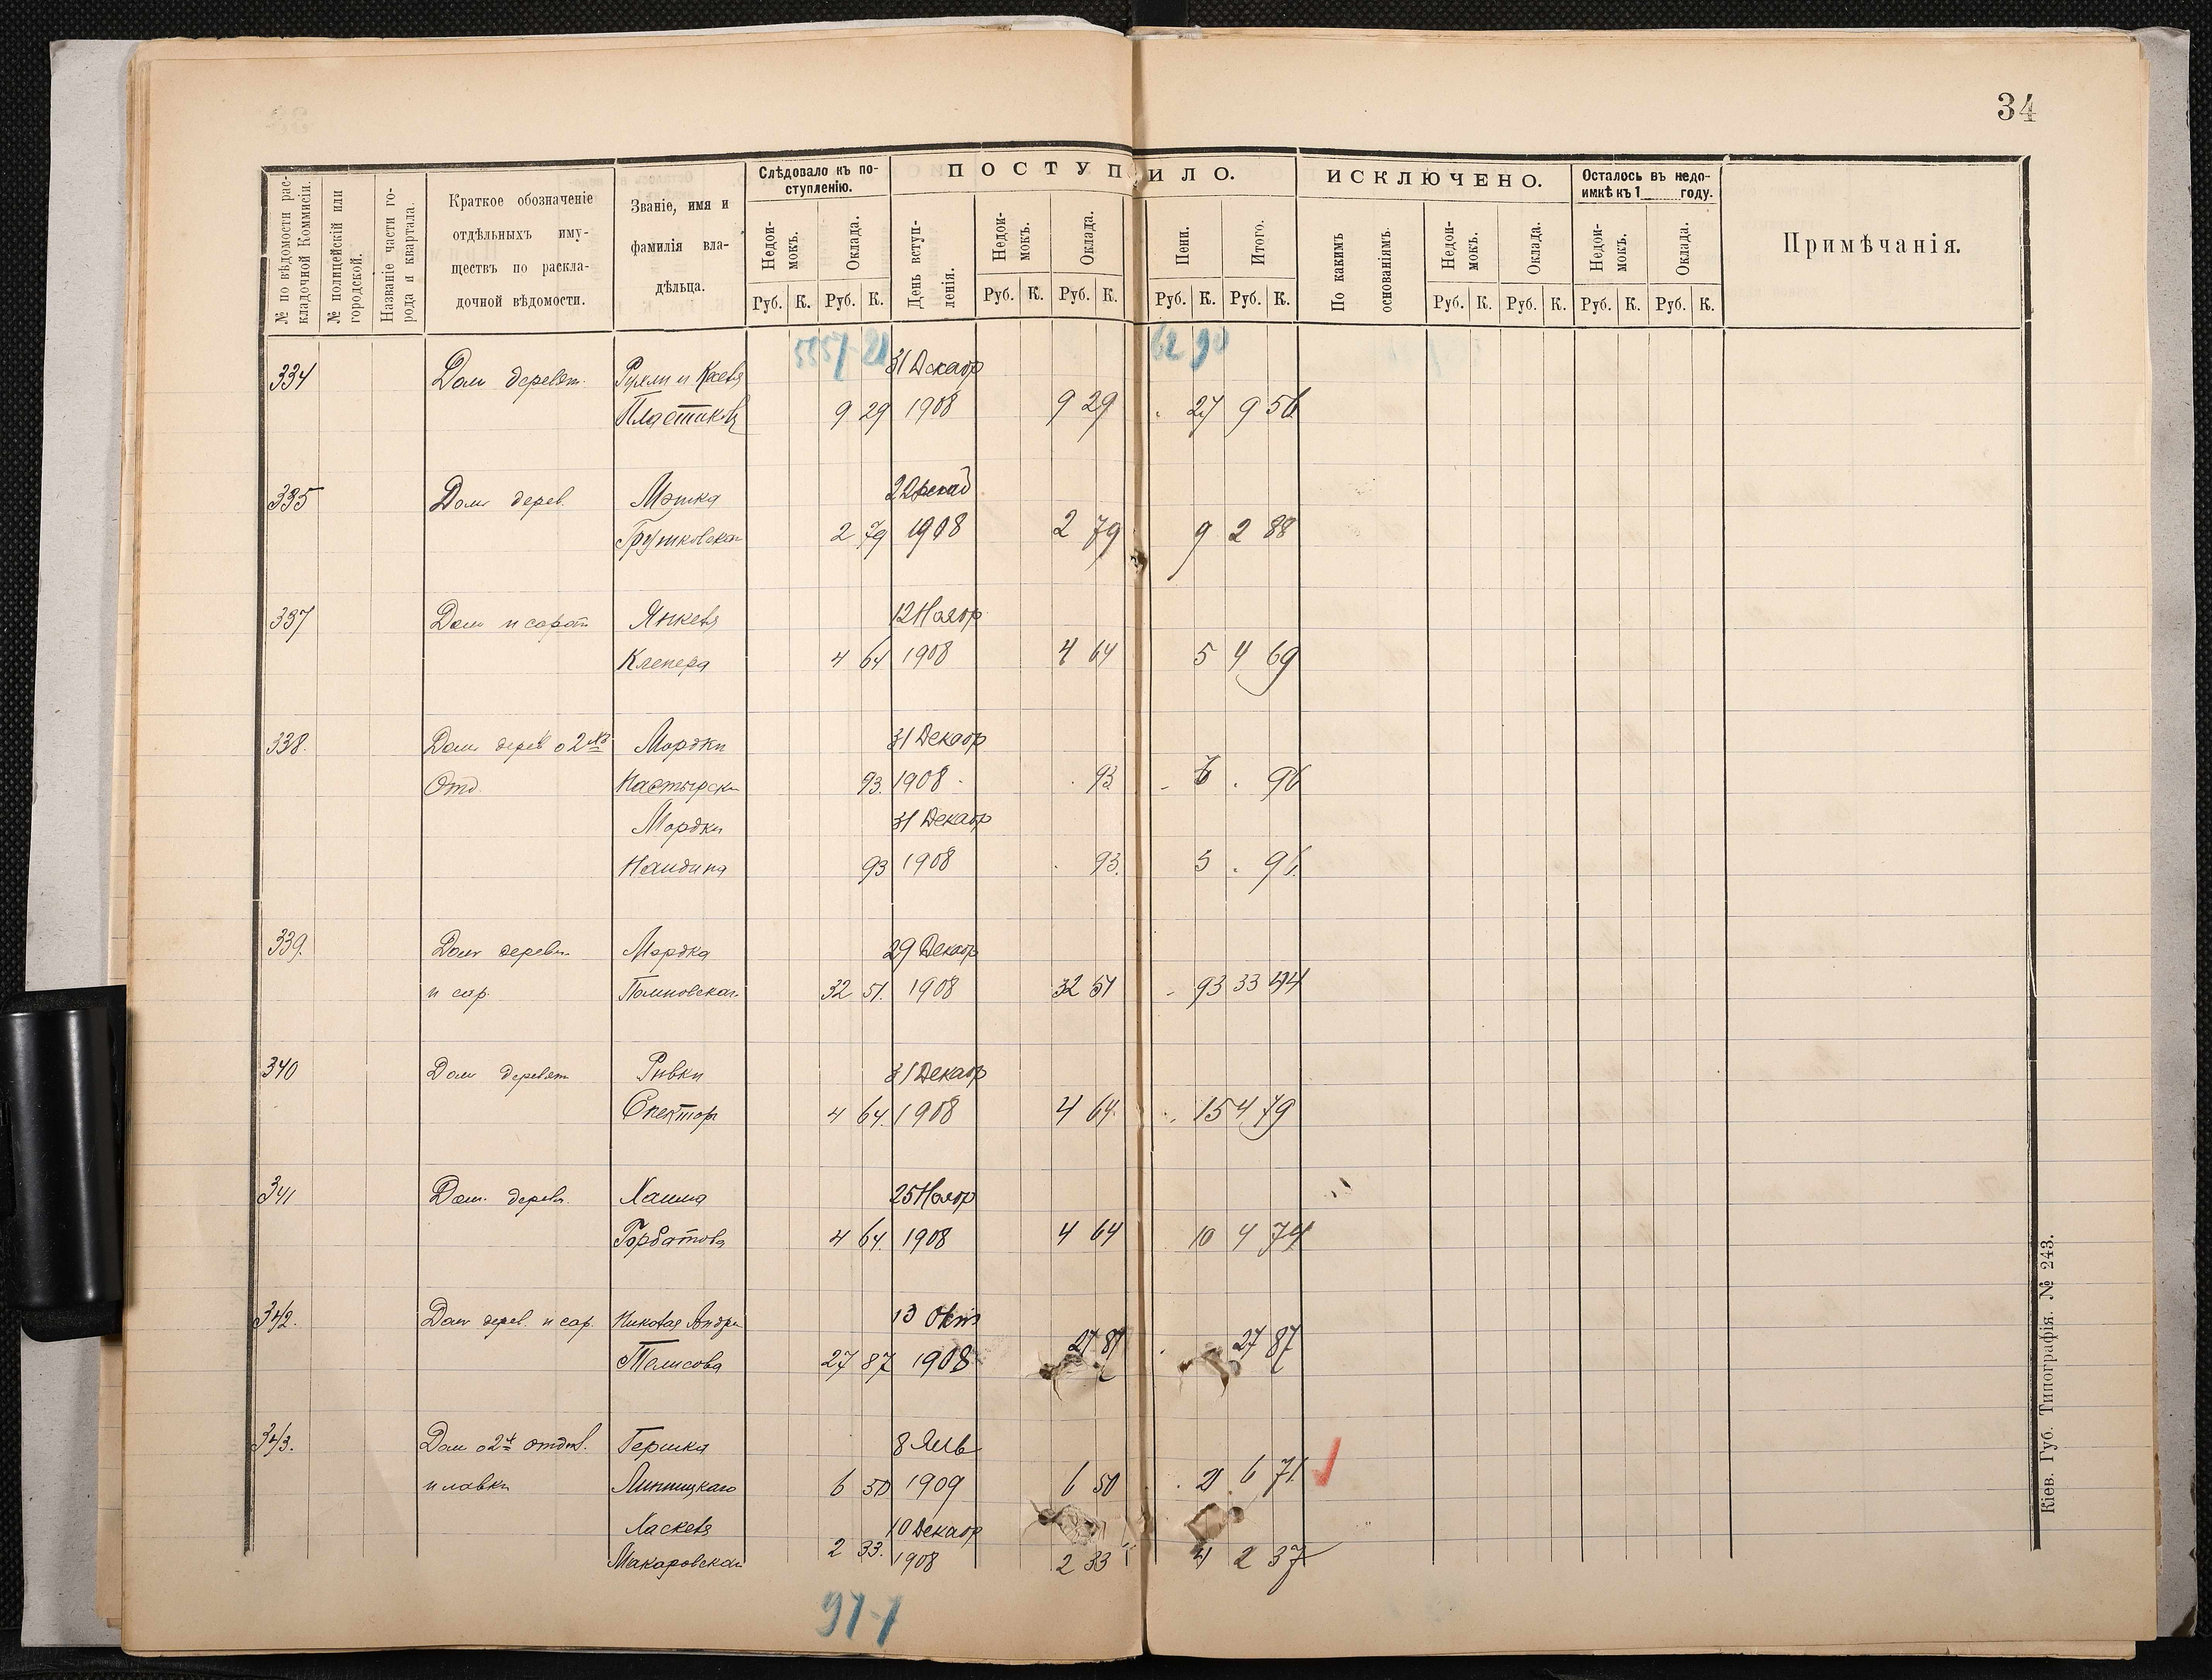 34
№ по вѣдомости раскладочной Коммисіи.
№ полицейскій или городской.
Названіе части города и квартала.
Краткое обозначеніе отдѣльныхъ имуществъ по раскладочной вѣдомости.
Званіе, имя и фамилія владѣльца.
Слѣдовало къ поступленію.
ПОСТУПИЛО.
ИСКЛЮЧЕНО.
Осталось въ недоимкѣ къ 1 году.
Примѣчанія.
Недоимокъ. Оклада. День вступленія. Недоимокъ. Оклада. Пени. Итого. По какимъ основаніямъ. Недоимокъ. Оклада. Недоимокъ. Оклада.
Руб. К. Руб. К. Руб. К. Руб. К. Руб. К. Руб. К. Руб. К. Руб. К. Руб. К. Руб. К.
62 90
334 Дом деревян. 31 Декабр
9 29 1908 9 29 27 9 56
335 Дом дерев. Мошка
2 79 1908 2 79 9 2 88
337 Дом и сарай Янкеля 12 Ноябр
Клепера 4 64 1908 4 64 5 4 69
338. Дом дерев о 2 Мордки 31 Декабр
Отд. 93. 1908 93 96
Мордки 31 Декабр
93 1908 93. 3 96
339. Дом деревян Мордка 29 Декабр
и сар. 32 51. 1908 32 51 93 33 44
340 Дом деревян Ривки 31 Декабр
Спектор 4 64. 1908 4 64. 15 4 79
341 Дом. дерев. Хаима 25 Ноябр
Горбатова 4 64. 1908 4 64 10 4 74
342. Дом дерев. и сар. 13 Окт
27 87 1908 27 87 27 87
343. Дом о 2 отдел. Гершка 8 Янв
и лавки Липницкаго 6 50 1909 6 50 21 6 71
Хаскеля 10 Декабр
Макаровская 2 33. 1908 2 33 4 2 37
97-1
Кіев. Губ. Типографія. № 243.